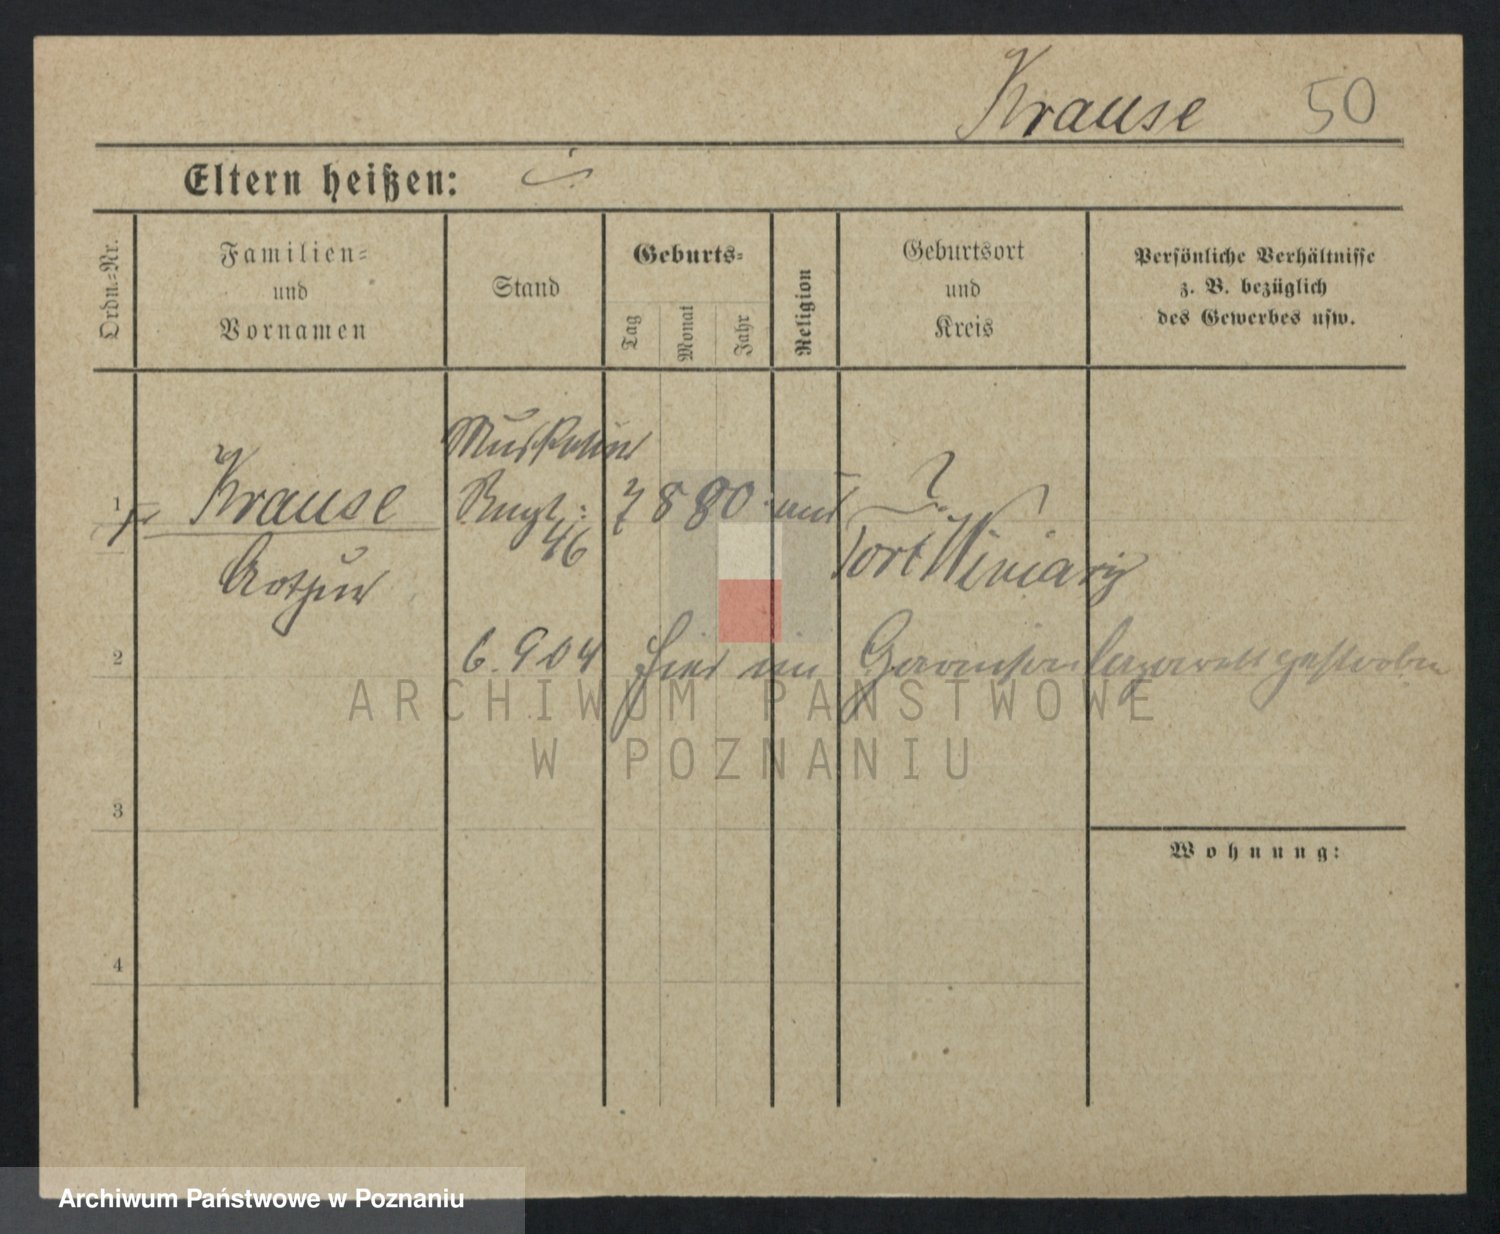 Krause 50
Eltern heißen:
Ordn.-Nr.
Familien-
und
Vornamen
Stand
Geburts-
Tag
Monat
Jahr
Religion
Geburtsort
und
Kreis
Persönliche Verhältnisse
z. B. bezüglich
des Gewerbes usw.
Musketier
1 Krause Regt: 7 8 80 ?
46
Arthur Fort Winiary
2 6. 904 hier im Garnisonlazarett gestorben
3
Wohnung:
4
ARCHIWUM PAŃSTWOWE
W POZNANIU
Archiwum Państwowe w Poznaniu